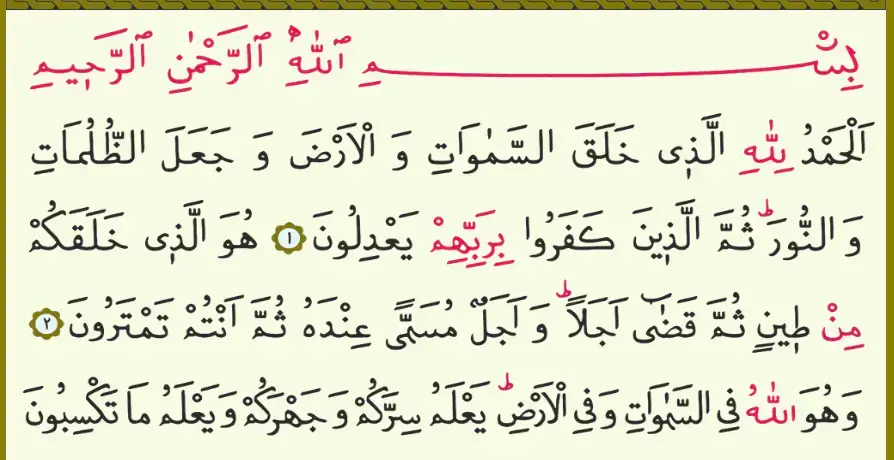 بِسْمِ ٱللّٰهِ ٱلرَّحْمٰنِ ٱلرَّحٖيمِ
اَلْحَمْدُ لِلّٰهِ الَّذٖى خَلَقَ السَّمٰوَاتِ وَ الْاَرْضَ وَ جَعَلَ الظُّلُمَاتِ
وَ النُّورَؕ ثُمَّ الَّذٖينَ كَفَرُوا بِرَبِّهِمْ يَعْدِلُونَ ١ هُوَ الَّذٖى خَلَقَكُمْ
مِنْ طٖينٍ ثُمَّ قَضٰٓى اَجَلًاؕ وَ اَجَلٌ مُسَمًّى عِنْدَهُ ثُمَّ اَنْتُمْ تَمْتَرُونَ ٢
وَ هُوَ اللّٰهُ فِى السَّمٰوَاتِ وَ فِى الْاَرْضِؕ يَعْلَمُ سِرَّكُمْ وَ جَهْرَكُمْ وَ يَعْلَمُ مَا تَكْسِبُونَ